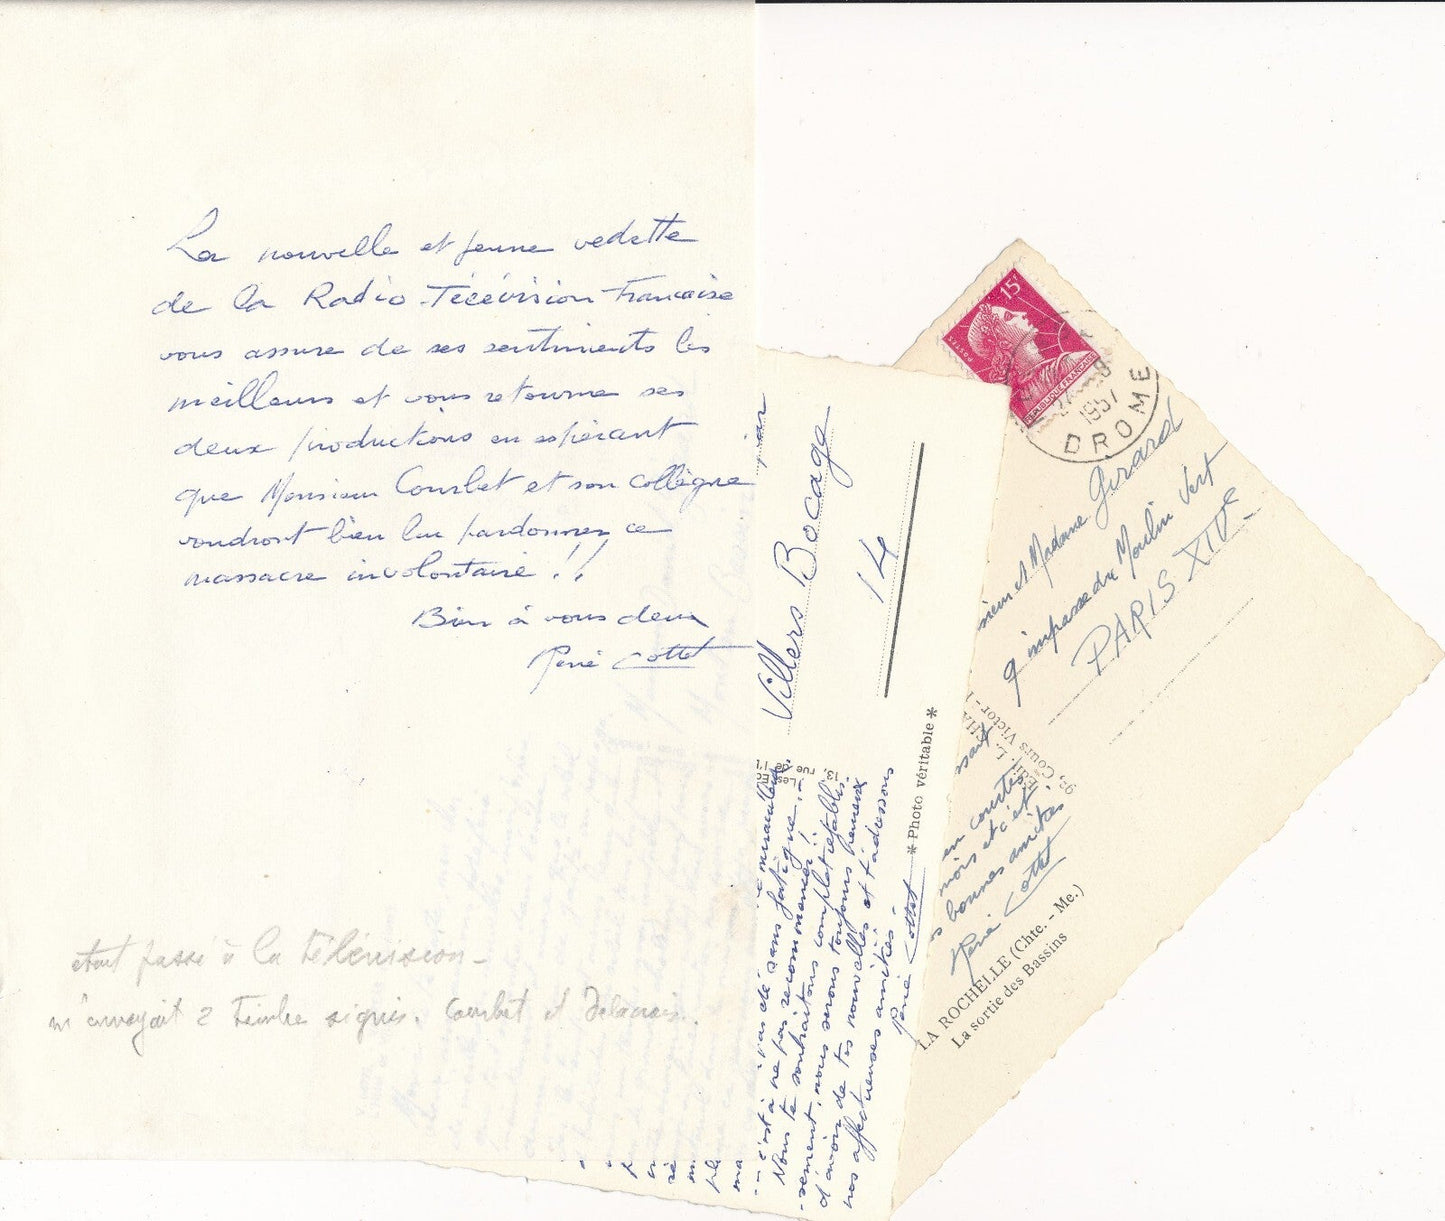 La nouvelle et jeune vedette
de la Radio Télévision Française
vous assure de ses sentiments les
meilleurs et vous retourne ses
deux productions en espérant
que Monsieur Courbet et son collègue
voudront bien lui pardonner ce
massacre involontaire !!
Bien à vous deux
René Cottet
était passé à la télévision -
m'envoyait 2 timbre signés. Courbet et Delacroix.
par
Villers Bocage
14
Les Ed
13, rue de l'I
* Photo véritable *
c'est à pas été sans fatigue, à
ne pas recommencer !!
Nous te souhaitons complet rétablis-
sement, nous serons toujours heureux
d'avoir de tes nouvelles et t'adressons
nos affectueuses amitiés
René Cottet
15F
POSTES
REPUBLIQUE FRANÇAISE
27 - 8
1957
DROME
sieur et Madame Girard
9 impasse du Moulin Vert
PARIS XIVe
Edit. L. CHA
Cours Victor -
en courtes
mois et c'est
bonnes amitiés
René Cottet
LA ROCHELLE (Chte. - Me.)
La sortie des Bassins